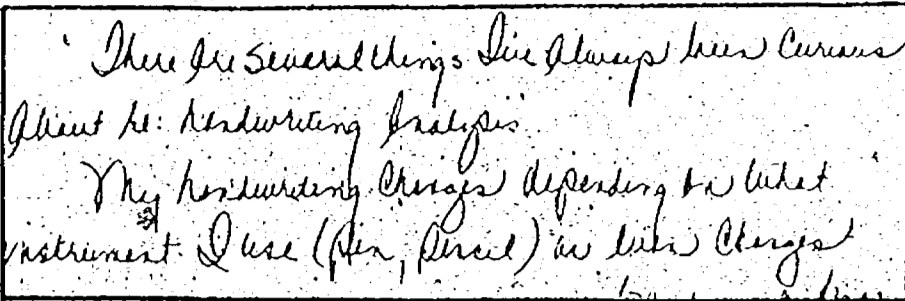 There Are Several things I've Always been Curious
About re: handwriting Analysis
My handwriting Changes depending on What
instrument I use (pen, pencil) or even Changes